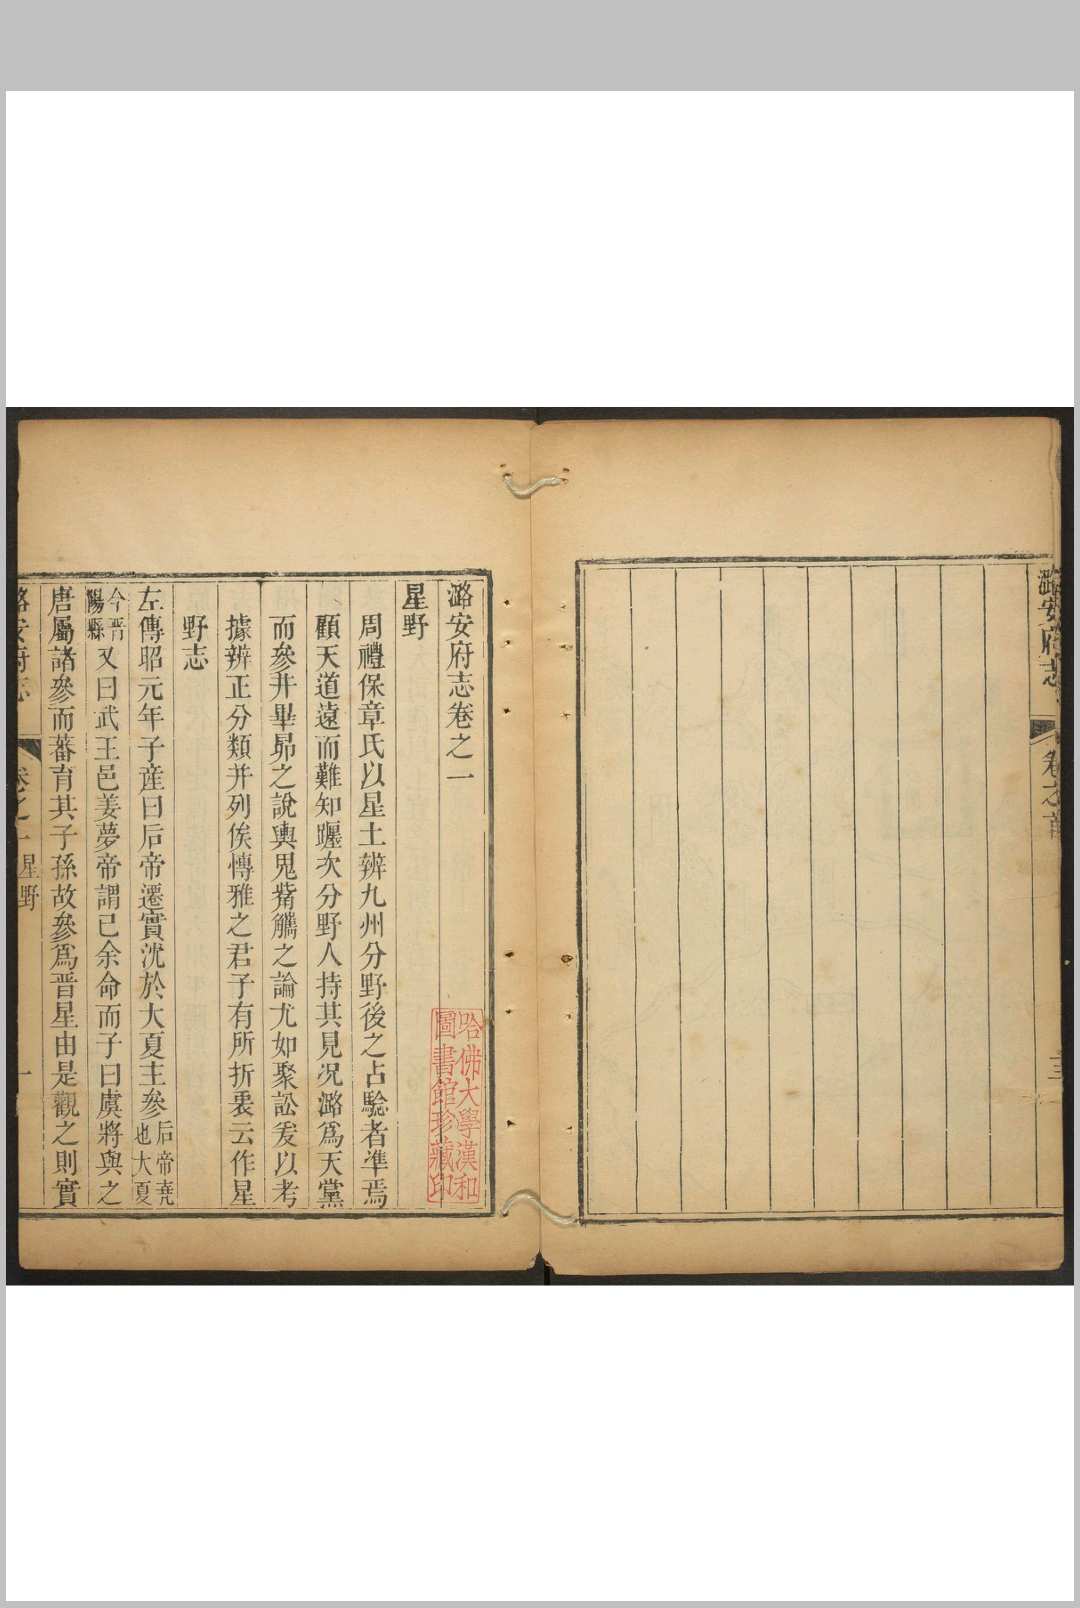 潞安府志
卷之首
潞安府志卷之一
星野
周禮保章氏以星土辨九州分野後之占驗者準焉
顧天道遠而難知躔次分野人持其見况潞爲天黨
而參井畢昴之說輿鬼觜觿之論尤如聚訟爰以考
據辨正分類并列俟博雅之君子有所折衷云作星
野志
左傳昭元年子產曰后帝遷實沈於大夏主參后帝堯也大夏
今晋陽縣又曰武王邑姜夢帝謂己余命而子曰虞將與之
唐屬諸參而蕃育其子孫故參爲晋星由是觀之則實
潞安府志
卷之一
星野
一
哈佛大學漢和
圖書館珍藏印